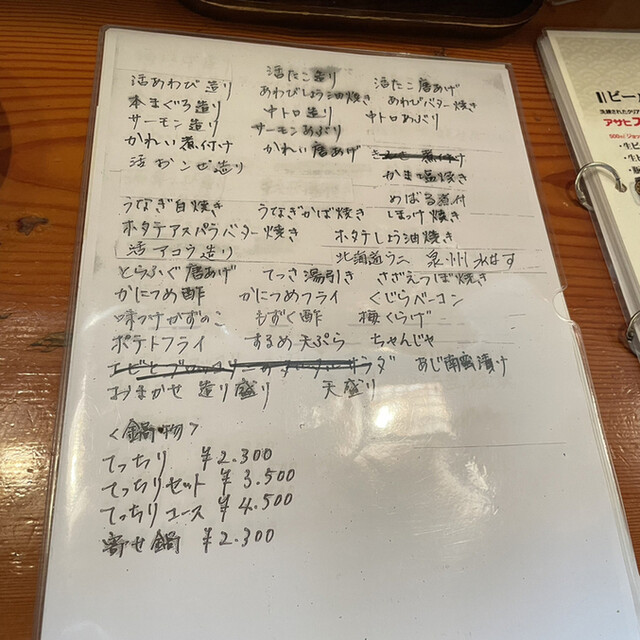 活あわび造り　活たこ造り　活たこ唐あげ
本まぐろ造り　あわびしょう油焼き　あわびバター焼き
サーモン造り　中トロ造り　中トロあぶり
かれい煮付け　サーモンあぶり
活おこぜ造り　かれい唐あげ　煮付け
かま塩焼き
うなぎ白焼き　うなぎかば焼き　めばる煮付
しまっけ焼き
ホタテアスパラバター焼き　ホタテしょう油焼き
活アコウ造り　北海道ウニ　泉州水なす
とらふぐ唐あげ　てっさ湯引き　さざえつぼ焼き
かにつめ酢　かにつめフライ　くじらベーコン
味つけかずのこ　もずく酢　梅くらげ
ポテトフライ　するめ天ぷら　ちゃんじゃ
あじ南蛮漬け
おまかせ造り盛り　天盛り
<鍋物>
てっちり　¥2.300
てっちりセット　¥3.500
てっちりコース　¥4.500
寄せ鍋　¥2.300
ビール
アサヒス